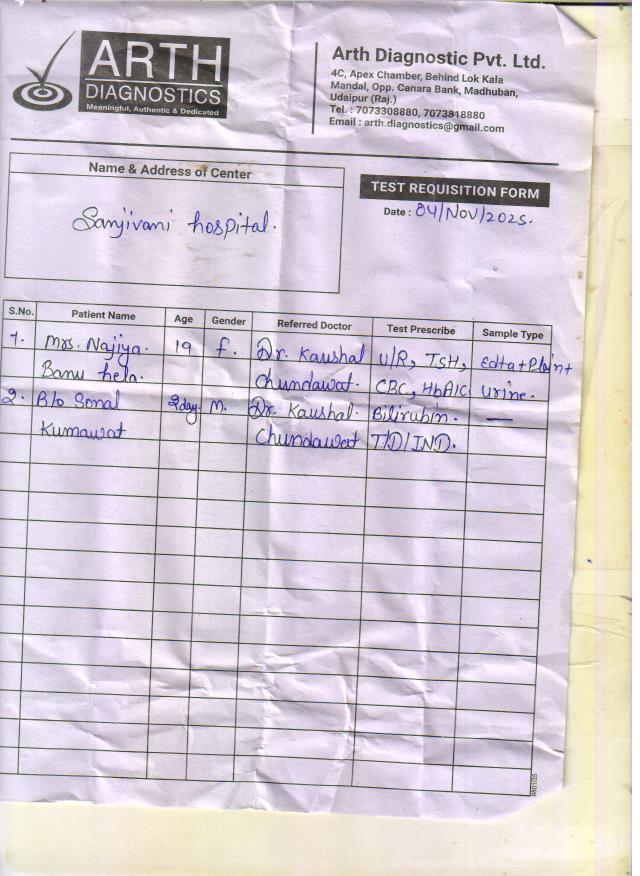 ARTH
DIAGNOSTICS
Meaningful, Authentic & Dedicated
Arth Diagnostic Pvt. Ltd.
4C, Apex Chamber, Behind Lok Kala
Mandal, Opp. Canara Bank, Madhuban,
Udaipur (Raj.)
Tel. : 7073308880, 7073818880
Email : arth.diagnostics@gmail.com
Name & Address of Center
Sanjivani hospital.
TEST REQUISITION FORM
Date : 04/Nov/2025.
S.No. Patient Name Age Gender Referred Doctor Test Prescribe Sample Type
1. Mrs. Najiya. 19 f. Dr. Kaushal U/R, TSH, Edta+Plain+
Banu hela. Chundawat. CBC, HbA1C Urine.
2. B/o Sonal 2day. M. Dr. Kaushal. Bilirubin. —
Kumawat Chundawat T/D/IND.
8801/25